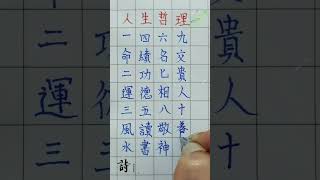 人生哲理
一命二運三風水
四積功德五讀書
六名七相八敬神
九交貴人十養
詩